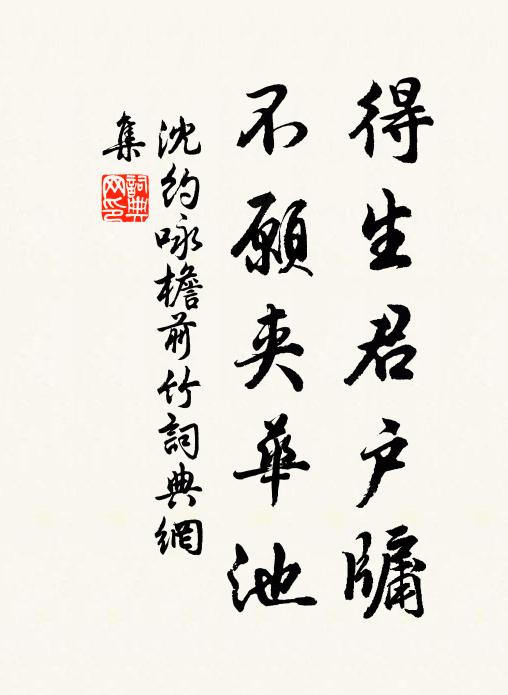 得生君户牖
不願夾華池
沈約咏檐前竹詞典網
集
詞典網印